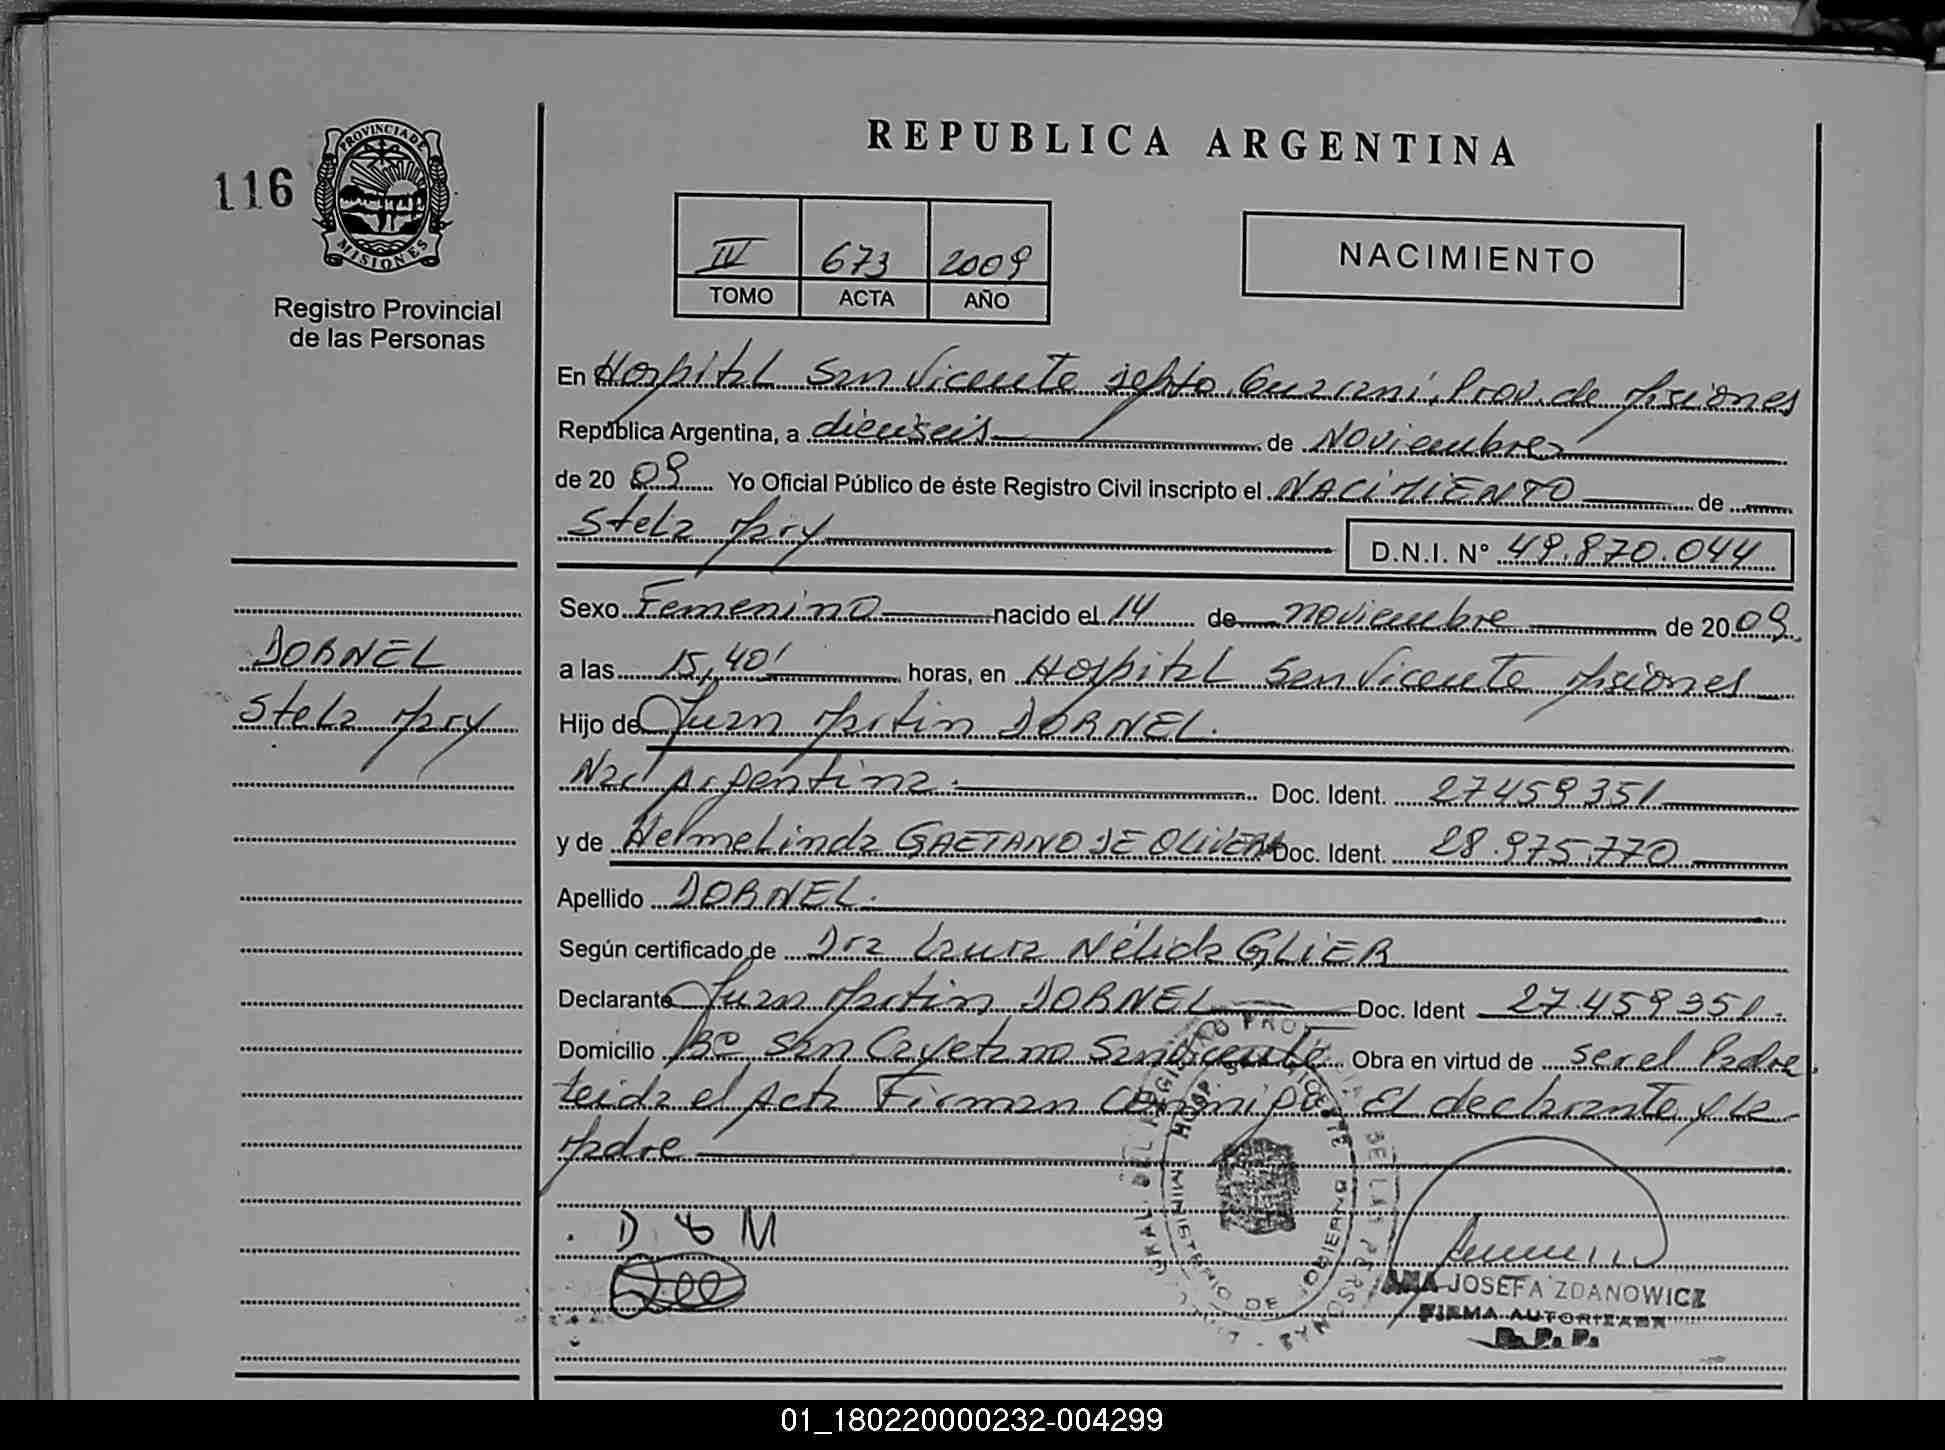 REPUBLICA ARGENTINA
116
PROVINCIA DE
MISIONES
Registro Provincial
de las Personas
IV 673 2009
TOMO ACTA AÑO
NACIMIENTO
En Hospital San Vicente Depto. Guaraní, Prov. de Misiones
República Argentina, a dieciseis de Noviembre
de 2009 Yo Oficial Público de éste Registro Civil inscripto el NACIMIENTO de
Stela Mary
D.N.I. Nº 49.870.044
Sexo Femenino nacido el 14 de noviembre de 2009
DORNEL
Stela Mary
a las 15,40' horas, en Hospital San Vicente Misiones
Hijo de Juan Martin DORNEL.
Nac Argentina. Doc. Ident. 27459351
y de Hermelinda GAETANO DE OLIVERA Doc. Ident. 28.975.770
Apellido DORNEL.
Según certificado de Dra Laura Nélida GLIER
Declarante Juan Martin DORNEL Doc. Ident 27.459351.
Domicilio Bº San Cayetano San Vicente Obra en virtud de ser el Padre
leida el Acta Firman Conmigo El declarante y la
Madre
D J M
ANA JOSEFA ZDANOWICZ
FIRMA AUTORIZADA
R.P.P.
MINISTERIO DE GOBIERNO
01_180220000232-004299